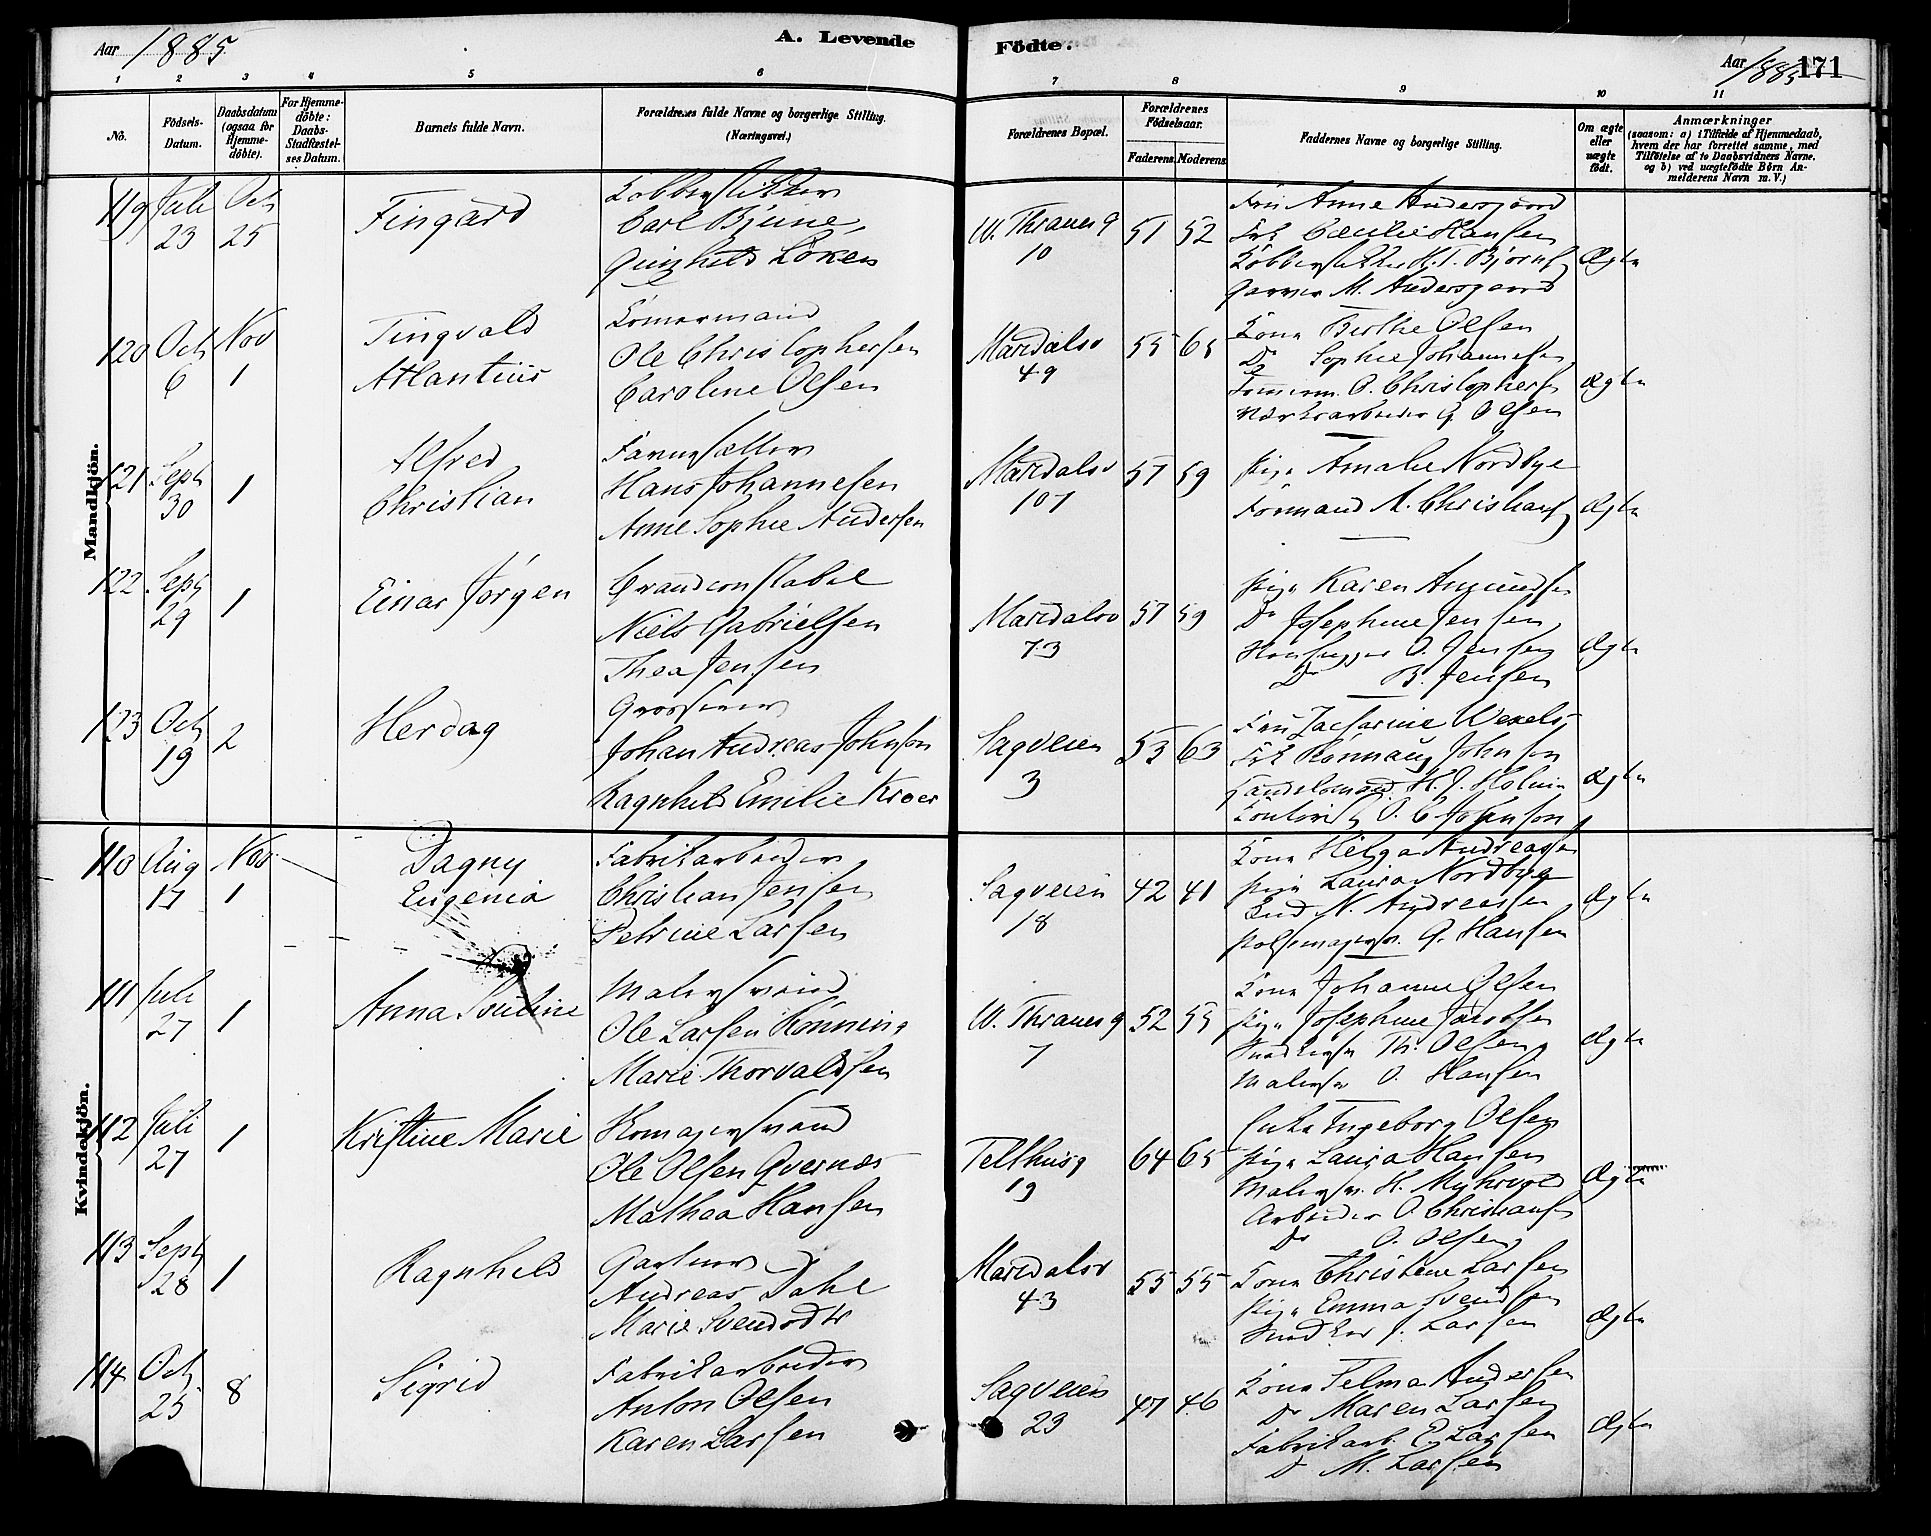 Aar 1885
A. Levende Födte.
Aar 1885 171
1 2 3 4 5 6 7 8 9 10 11
No.
Födsels-Datum.
Daabsdatum (ogsaa for Hjemme-döbte).
For Hjemme-döbte: Daabs-Stadfæstel-ses Datum.
Barnets fulde Navn.
Forældrenes fulde Navne og borgerlige Stilling. (Næringsvei.)
Forældrenes Bopæl.
Forældrenes Födselsaar.
Faderens. Moderens.
Faddernes Navne og borgerlige Stilling.
Om ægte eller uægte födt.
Anmærkninger
(saasom: a) i Tilfælde af Hjemmedaab, hvem der har forrettet samme, med Tilföielse af to Daabsvidners Navne. og b) ved uægtefödte Börn Anmelderens Navn m. V.)
Mandkjön.
119 Juli 23 Oct 25
Fingard
Kobberstikker
Carl Bjerne
Gunhild Løken
W. Thranes g 10
51 52
Fru Anne Andersgaard
Frk Cecilie Hansen
Kobberstikker
M. Andersgaard
Ægte
120 Oct 6 Nov 1
Tingvald
Atlantius
Ole Christophersen
Caroline Olsen
Maridalsv 49
55 65
Kone Berthe Olsen
Do Sophie Johannesen
O. Christophers
Olsen
Ægte
121 Sept 30 1
Alfred
Christian
Hans Johannesen
Anne Sophie Andersen
Maridalsv 107
57 59
Pige Amalie Nordbye
Formand A. Christians
Ægte
122 Sept 29 1
Einar Jørgen
Brandconstabel
Niels Gabrielsen
Thea Jensen
Maridalsv 73
57 59
Pige Karen Amundsen
Do Josephine Jensen
O. Jensen
Do B. Jensen
Ægte
123 Oct 19 2
Herdag
Grosserer
Johan Andreas Johnson
Ragnhild Emilie Kroer
Sagveien 3
53 63
Fru Zacharine Wexels
Frk Rønnaug Johnson
Handelsmand H. J. Holm
O. C Johnson
Ægte
Kvindekjön.
110 Aug 17 Nov 1
Dagny
Eugenia
Fabrikarbeider
Christian Jensen
Petrine Larsen
Sagveien 18
42 41
Kone Helga Andreasen
Pige Laura Nordbye
Bud N. Andreasen
Hansen
Ægte
111 Juli 27 1
Anna
Malersvend
Ole Larsen Rønning
Marie Thorvaldsen
W. Thranes g 7
52 55
Kone Johanne Olsen
Pige Josephine Jacobsen
Snedkers Th. Olsen
Malersv O. Hansen
Ægte
112 Juli 27 1
Kristine Marie
Skomagersvend
Ole Olsen Qvernæs
Mathea Hansen
Telthusg 19
64 65
Enke Ingeborg Olsen
Pige Laura Hansen
Malersv. H. Myhrvold
Arbeider O. Christians
Do O. Olsen
Ægte
113 Sept 28 1
Ragnhild
Gartner
Andreas Dahl
Marie Svendsdtr
Maridalsv 43
55 55
Kone Christine Larsen
Pige Emma Svendsen
Snedker J. Larsen
Ægte
114 Oct 25 8
Sigrid
Fabrikarbeider
Anton Olsen
Karen Larsen
Sagveien 23
47 46
Kone Selma Andersen
Do Maren Larsen
Fabrikarb. E. Larsen
Do M. Larsen
Ægte